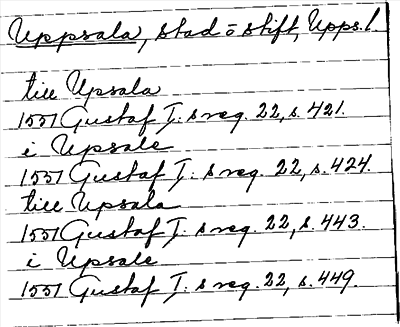 Uppsala, stad o stift, Upps. l.
till Upsala
1551 Gustaf I: s reg. 22, s. 421.
i Upsale
1551 Gustaf I: s reg. 22, s. 424.
till Upsala
1551 Gustaf I: s reg. 22, s. 443.
i Upsale
1551 Gustaf I: s reg. 22, s. 449.